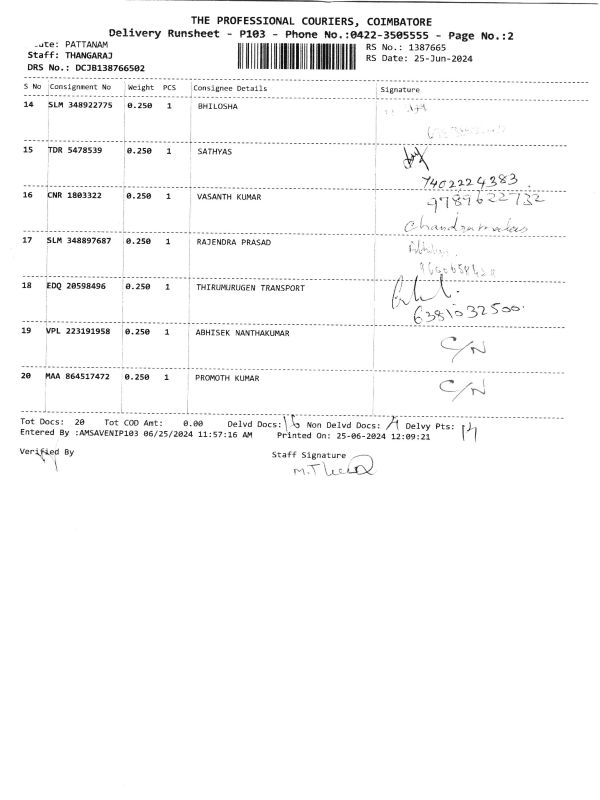 THE PROFESSIONAL COURIERS, COIMBATORE
Delivery Runsheet - P103 - Phone No.:0422-3505555 - Page No.:2
PATTANAM
RS No.: 1387665
Staff: THANGARAJ
RS Date: 25-Jun-2024
DRS No.: DCJB138766502
S No Consignment No Weight PCS Consignee Details Signature
14 SLM 348922775 0.250 1 BHILOSHA
15 TDR 5478539 0.250 1 SATHYAS
7402224383.
16 CNR 1803322 0.250 1 VASANTH KUMAR 9789622732
17 SLM 348897687 0.250 1 RAJENDRA PRASAD
18 EDQ 20598496 0.250 1 THIRUMURUGEN TRANSPORT
6381032500.
19 VPL 223191958 0.250 1 ABHISEK NANTHAKUMAR C/N
20 MAA 864517472 0.250 1 PROMOTH KUMAR C/N
Tot Docs: 20 Tot COD Amt: 0.00 Delvd Docs: 16 Non Delvd Docs: 4 Delvy Pts: 14
Entered By :AMSAVENIP103 06/25/2024 11:57:16 AM Printed On: 25-06-2024 12:09:21
Verified By
Staff Signature